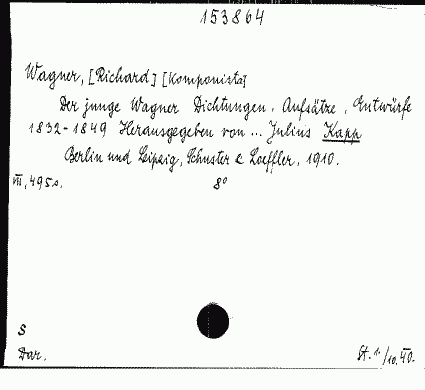 153864
Wagner, [Richard] [Komponista]
Der junge Wagner Dichtungen, Aufsätze, Entwürfe
1832-1849 Herausgegeben von ... Julius Kapp
Berlin und Leipzig, Schuster & Loeffler, 1910.
VIII, 495 s. 8°
S
Dar. St. 1/10. 40.